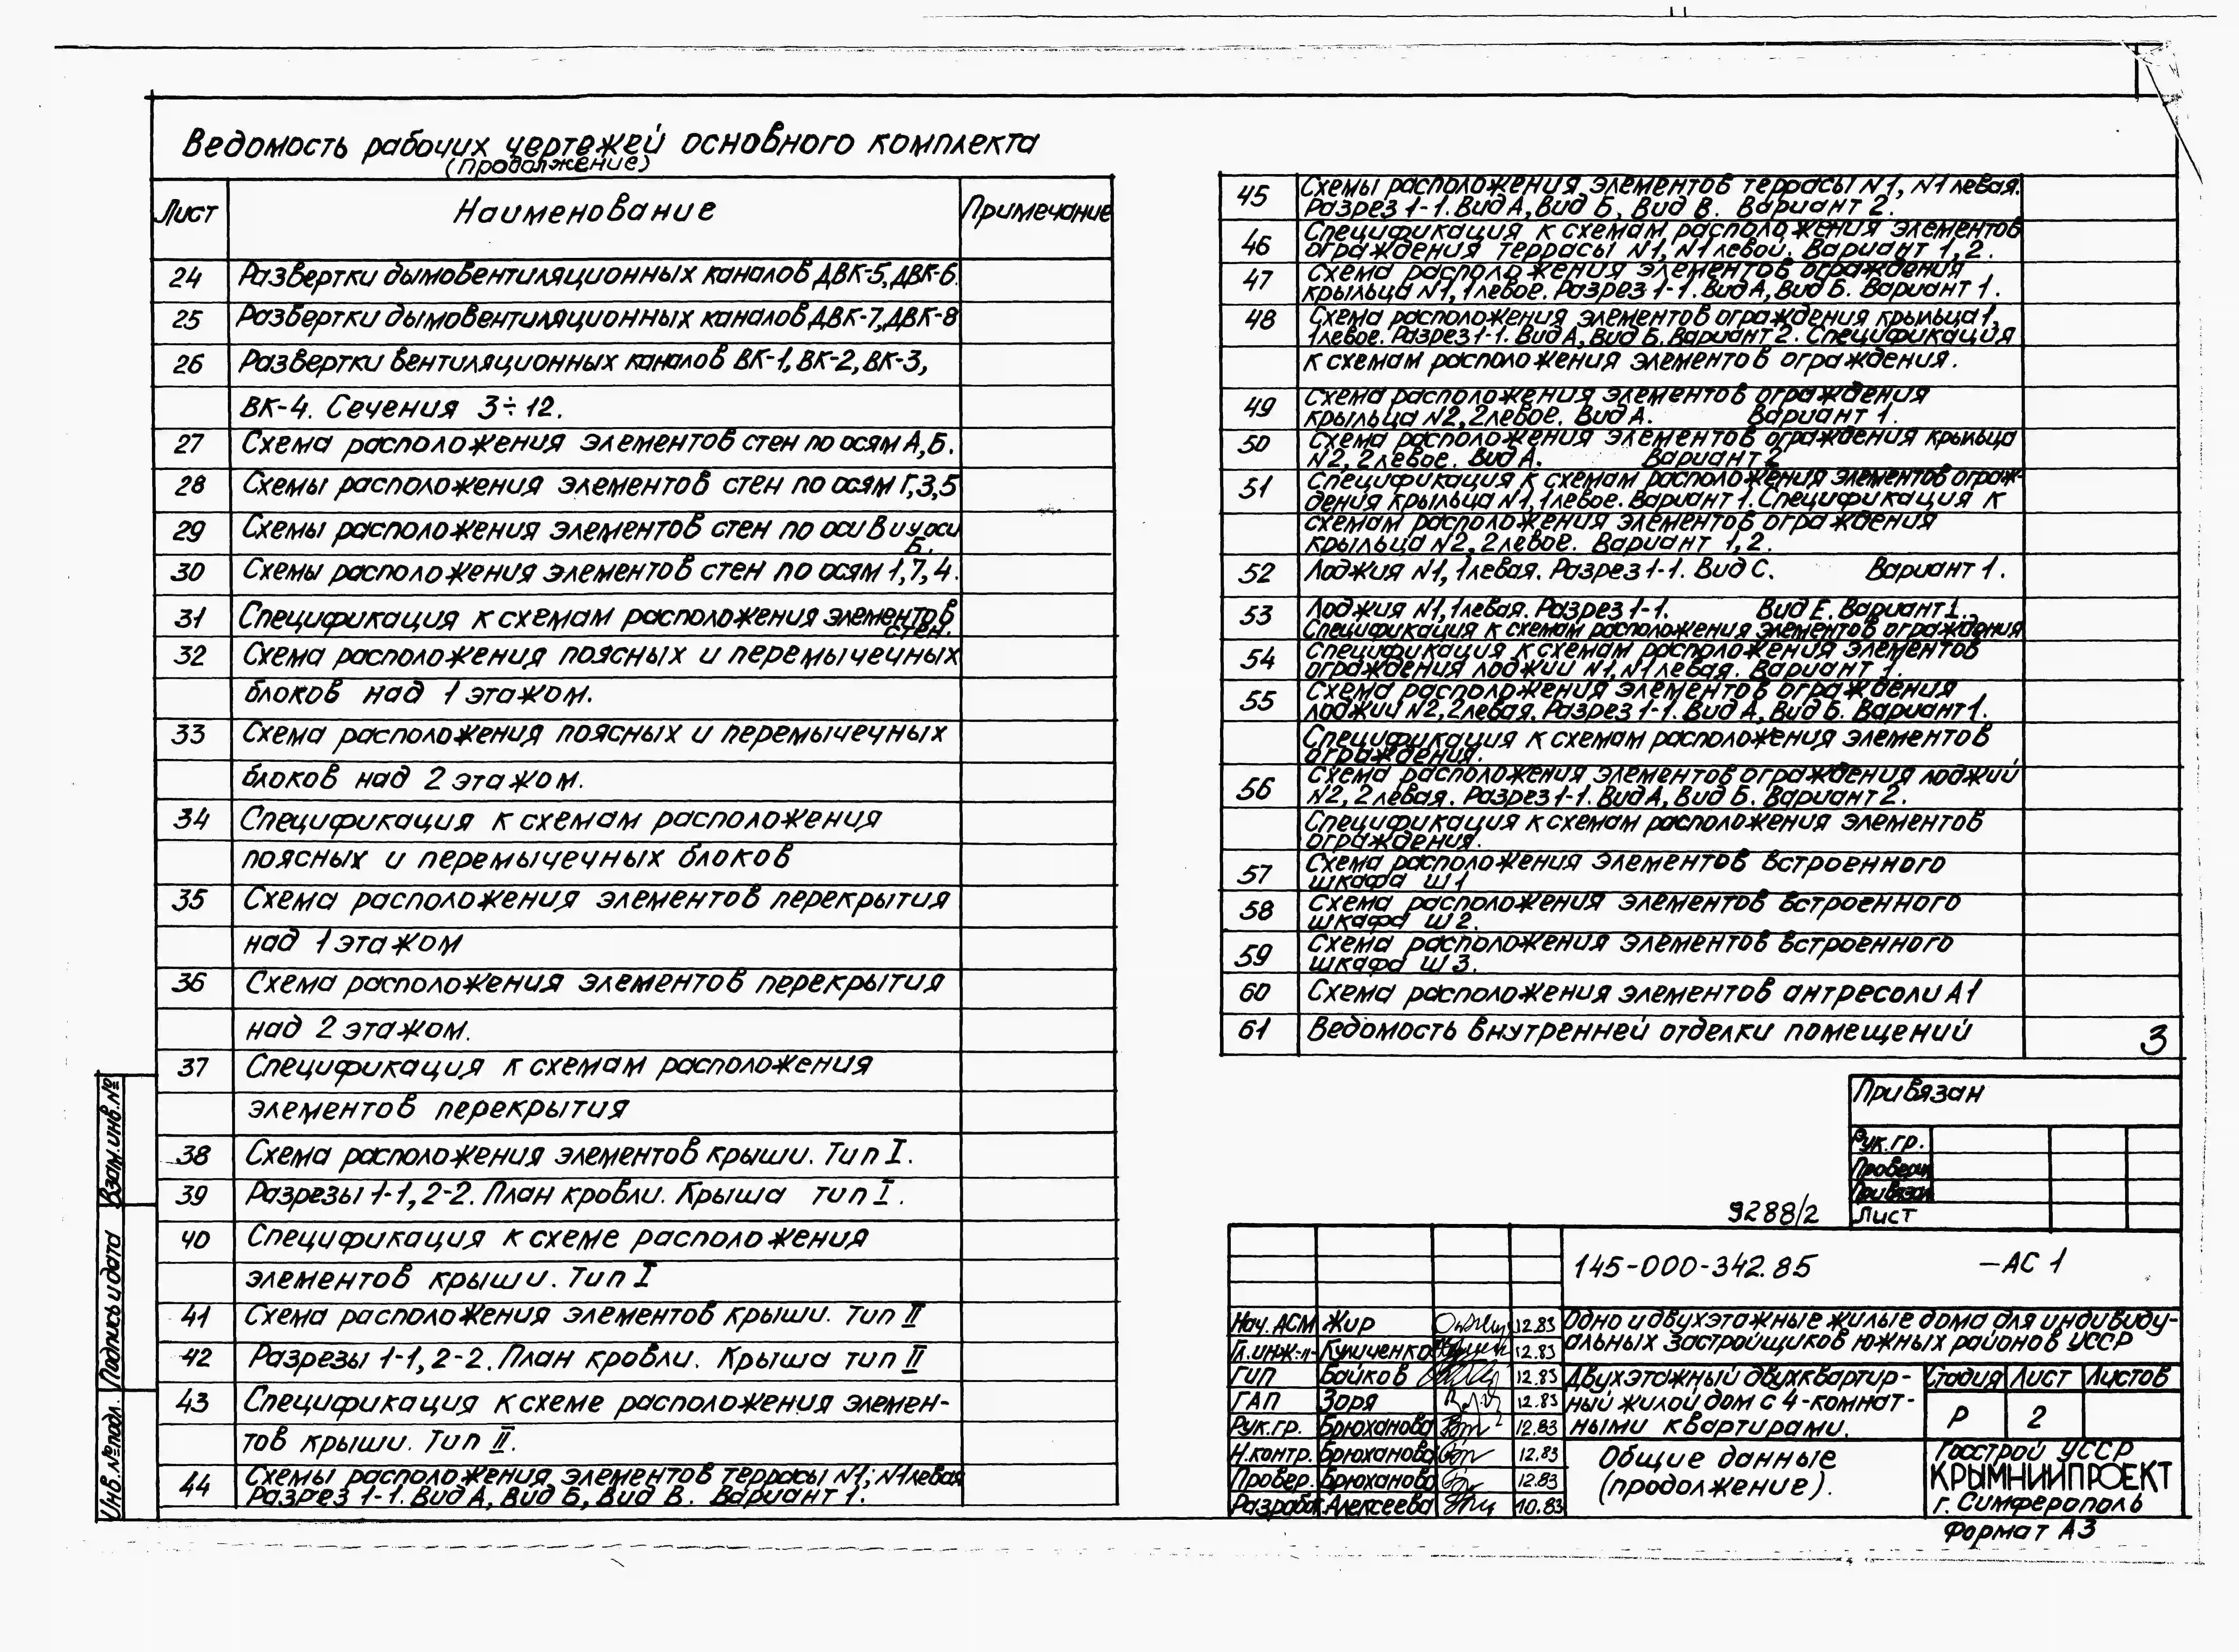 Ведомость рабочих чертежей основного комплекта
(продолжение)
Лист Наименование Примечание
24 Развертки дымовентиляционных каналов ДВК-5, ДВК-6.
25 Развертки дымовентиляционных каналов ДВК-7, ДВК-8
26 Развертки вентиляционных каналов ВК-1, ВК-2, ВК-3,
ВК-4. Сечения 3÷12.
27 Схема расположения элементов стен по осям А,Б.
28 Схемы расположения элементов стен по осям Г,3,5
29 Схемы расположения элементов стен по оси В и у оси
Б.
30 Схемы расположения элементов стен по осям 1,7,4.
31 Спецификация к схемам расположения элементов
стен.
32 Схема расположения поясных и перемычечных
блоков над 1 этажом.
33 Схема расположения поясных и перемычечных
блоков над 2 этажом.
34 Спецификация к схемам расположения
поясных и перемычечных блоков
35 Схема расположения элементов перекрытия
над 1 этажом
36 Схема расположения элементов перекрытия
над 2 этажом.
37 Спецификация к схемам расположения
элементов перекрытия
38 Схема расположения элементов крыши. Тип I.
39 Разрезы 1-1, 2-2. План кровли. Крыша тип I.
40 Спецификация к схеме расположения
элементов крыши. Тип I
41 Схема расположения элементов крыши. Тип II
42 Разрезы 1-1, 2-2. План кровли. Крыша тип II
43 Спецификация к схеме расположения элемен-
тов крыши. Тип II.
44 Схемы расположения элементов террасы N1; N1левая
Разрез 1-1. Вид А, Вид Б, Вид В. Вариант 1.
45 Схемы расположения элементов террасы N1, N1левая.
Разрез 1-1. Вид А, Вид Б, Вид В. Вариант 2.
46 Спецификация к схемам расположения элементов
ограждения террасы N1, N1левой. Вариант 1,2.
47 Схема расположения элементов ограждения
крыльца N1, 1левое. Разрез 1-1. Вид А, Вид Б. Вариант 1.
48 Схема расположения элементов ограждения крыльца 1,
1левое. Разрез 1-1. Вид А, Вид Б. Вариант 2. Спецификация
к схемам расположения элементов ограждения.
49 Схема расположения элементов ограждения
крыльца N2, 2левое. Вид А. Вариант 1.
50 Схема расположения элементов ограждения крыльца
N2, 2левое. Вид А. Вариант 2
51 Спецификация к схемам расположения элементов ограж-
дения крыльца N1, 1левое. Вариант 1. Спецификация к
схемам расположения элементов ограждения
крыльца N2, 2левое. Вариант 1,2.
52 Лоджия N1, 1левая. Разрез 1-1. Вид С. Вариант 1.
53 Лоджия N1, 1левая. Разрез 1-1. Вид Е. Вариант 1.
Спецификация к схемам расположения элементов ограждения
54 Спецификация к схемам расположения элементов
ограждения лоджии N1, N1левая. Вариант 1.
55 Схема расположения элементов ограждения
лоджии N2, 2левая. Разрез 1-1. Вид А, Вид Б. Вариант 1.
Спецификация к схемам расположения элементов
ограждения.
56 Схема расположения элементов ограждения лоджии
N2, 2левая. Разрез 1-1. Вид А, Вид Б. Вариант 2.
Спецификация к схемам расположения элементов
ограждения.
57 Схема расположения элементов встроенного
шкафа Ш1
58 Схема расположения элементов встроенного
шкафа Ш2.
59 Схема расположения элементов встроенного
шкафа Ш3.
60 Схема расположения элементов антресоли А1
61 Ведомость внутренней отделки помещений
3
Привязан
Рук.гр.
Провер
Привязал
Лист
9288/2
145-000-342.85 -АС 1
Нач. АСМ Жир 12.83
Гл.инж.п Куличенко 12.83
ГИП Байков 12.83
ГАП Зоря 12.83
Рук.гр. Брюханова 12.83
Н.контр. Брюханова 12.83
Провер. Брюханова 12.83
Разраб. Алексеева 10.83
Одно и двухэтажные жилые дома для индивиду-
альных застройщиков южных районов УССР
Двухэтажный двухквартир-
ный жилой дом с 4-комнат-
ными квартирами.
Стадия Лист Листов
Р 2
Общие данные
(продолжение).
Госстрой УССР
КРЫМНИИПРОЕКТ
г. Симферополь
Формат А3
Взам.инв.№
Подпись и дата
Инв.№подл.